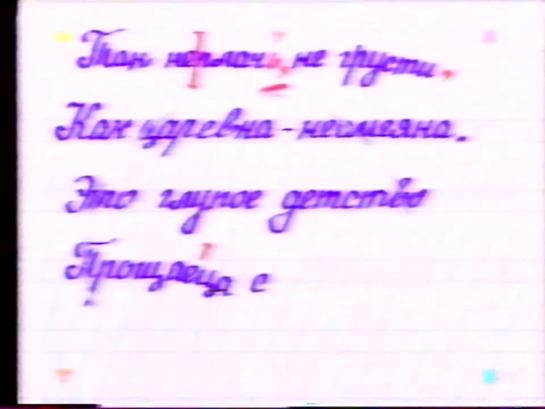 Так неплачь, не грусти.
Как царевна-несмеяна.
Это глупое детство
Прощаеца с